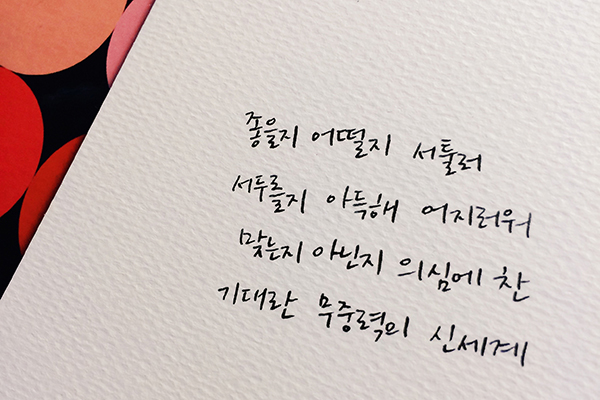 좋을지 어떨지 서툴러
서두를지 아득해 어지러워
맞는지 아닌지 의심에 찬
기대란 무중력의 신세계